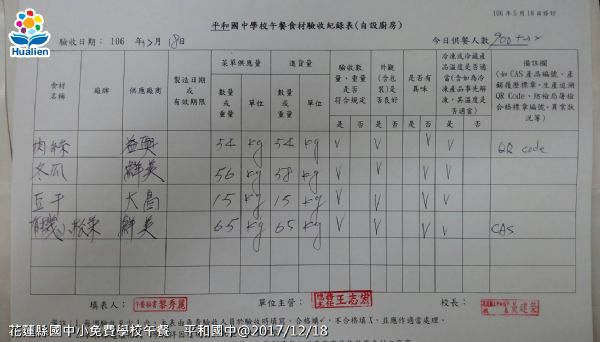 106年5月18日修訂
Hualien
平和國中學校午餐食材驗收紀錄表(自設廚房)
驗收日期: 106 年12月18日
今日供餐人數
食材名稱 廠牌 供應廠商 製造日期或有效期限 菜單供應量 進貨量 驗收數量,重量是否符合規定 外觀(含包裝)是否良好 是否有異味 冷凍或冷藏產品溫度是否適當(含如為冷凍產品事先解凍,其溫度是否適當) 備註欄(如CAS產品編號、產銷履歷標章、生產追溯QR Code、防檢局屠檢合格標章編號、異常狀況等)
數量或重量 單位 數量或重量 單位 是 否 是 否 是 否 是 否
肉絲 益興 54 kg 54 kg V V V V QR code
冬瓜 鮮美 56 kg 58 kg V V V V
豆干 大昌 15 kg 15 kg V V V V
有機小松菜 鮮美 65 kg 65 kg V V V V CAS
填表人: 午餐秘書 黎秀麗 單位主管: 王志宏 校長:
花蓮縣國中小免費學校午餐 平和國中@2017/12/18